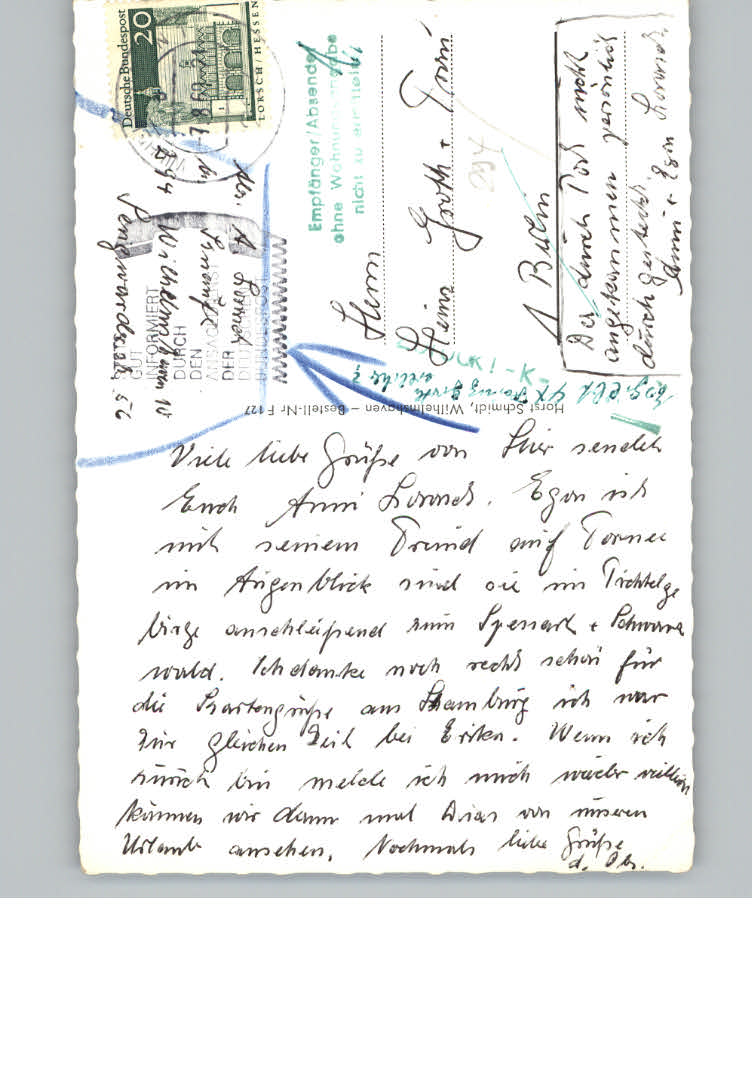 Deutsche Bundespost
20
LORSCH/HESSEN
GUT
INFORMIERT
DURCH
DEN
DER
Abs. A.
294 Wilhelmshaven
Sengwarderstr. 56
Empfänger/Absender
ohne Wohnungsangabe
nicht zu ermitteln
Herrn
Heinz Groth +
294
1 Berlin
Da durch Post nicht
angekommen persönlich
durch
Anni + Egon
Horst Schmidt, Wilhelmshaven – Bestell-Nr F 127
Viele liebe Grüße von hier sendet
Euch Anni. Egon ist
mit seinem Freund auf Tournee
im Augenblick sind sie im Fichtelge
birge anschließend zum Spessart + Schwarz
wald. Ich danke noch recht schön für
die Kartengrüße aus Hamburg ich war
zur gleichen Zeit bei Eriken. Wenn ich
zurück bin melde ich mich wieder vielleicht
können wir dann mal Dias von unseren
Urlaub ansehen. Nochmals liebe Grüße
d. Ob.